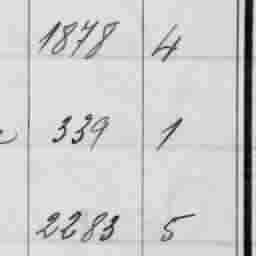 1878 4
339 1
2283 5